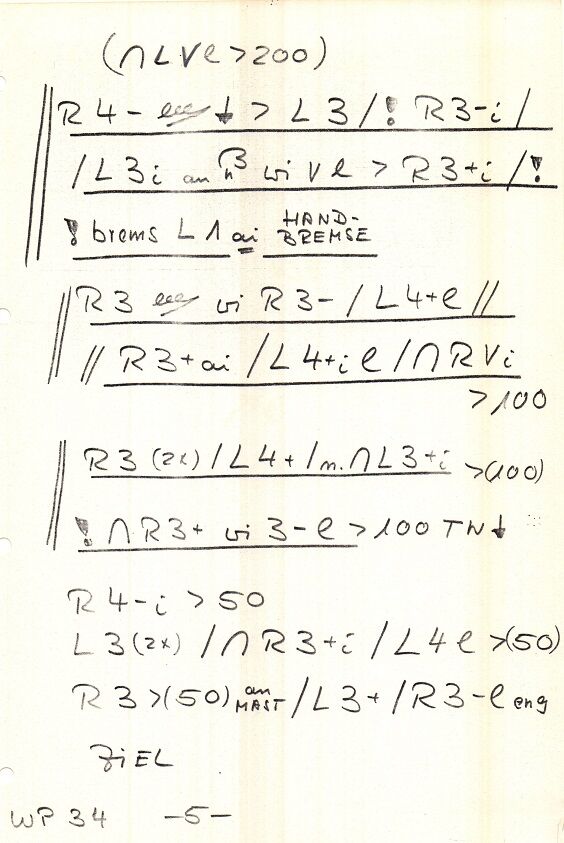 (∩ L V l > 200)
R 4 - ↓ > L 3 / ! R 3 - i /
/ L 3 i an wi V l > R 3 + i / !
! brems L 1 ai HAND-
BREMSE
R 3 wi R 3 - / L 4 + l //
// R 3 + ai / L 4 + i l / ∩ R V i
> 100
R 3 (2x) / L 4 + / m. ∩ L 3 + i > (100)
! ∩ R 3 + wi 3 - l > 100 TN ↓
R 4 - i > 50
L 3 (2x) / ∩ R 3 + i / L 4 l > (50)
R 3 > (50) an MAST / L 3 + / R 3 - l eng
ZIEL
WP 34 - 5 -